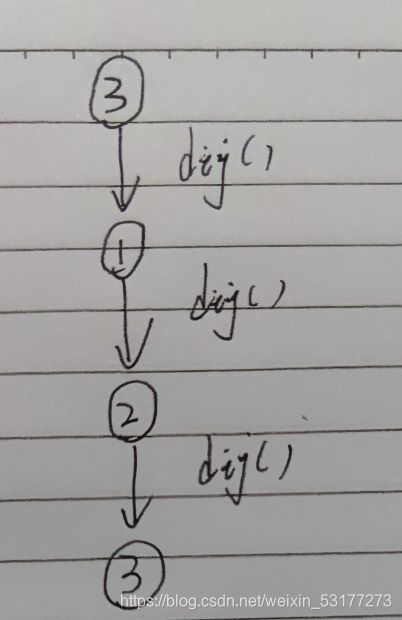 3
dij()
1
dij()
2
dij()
3
https://blog.csdn.net/weixin_53177273